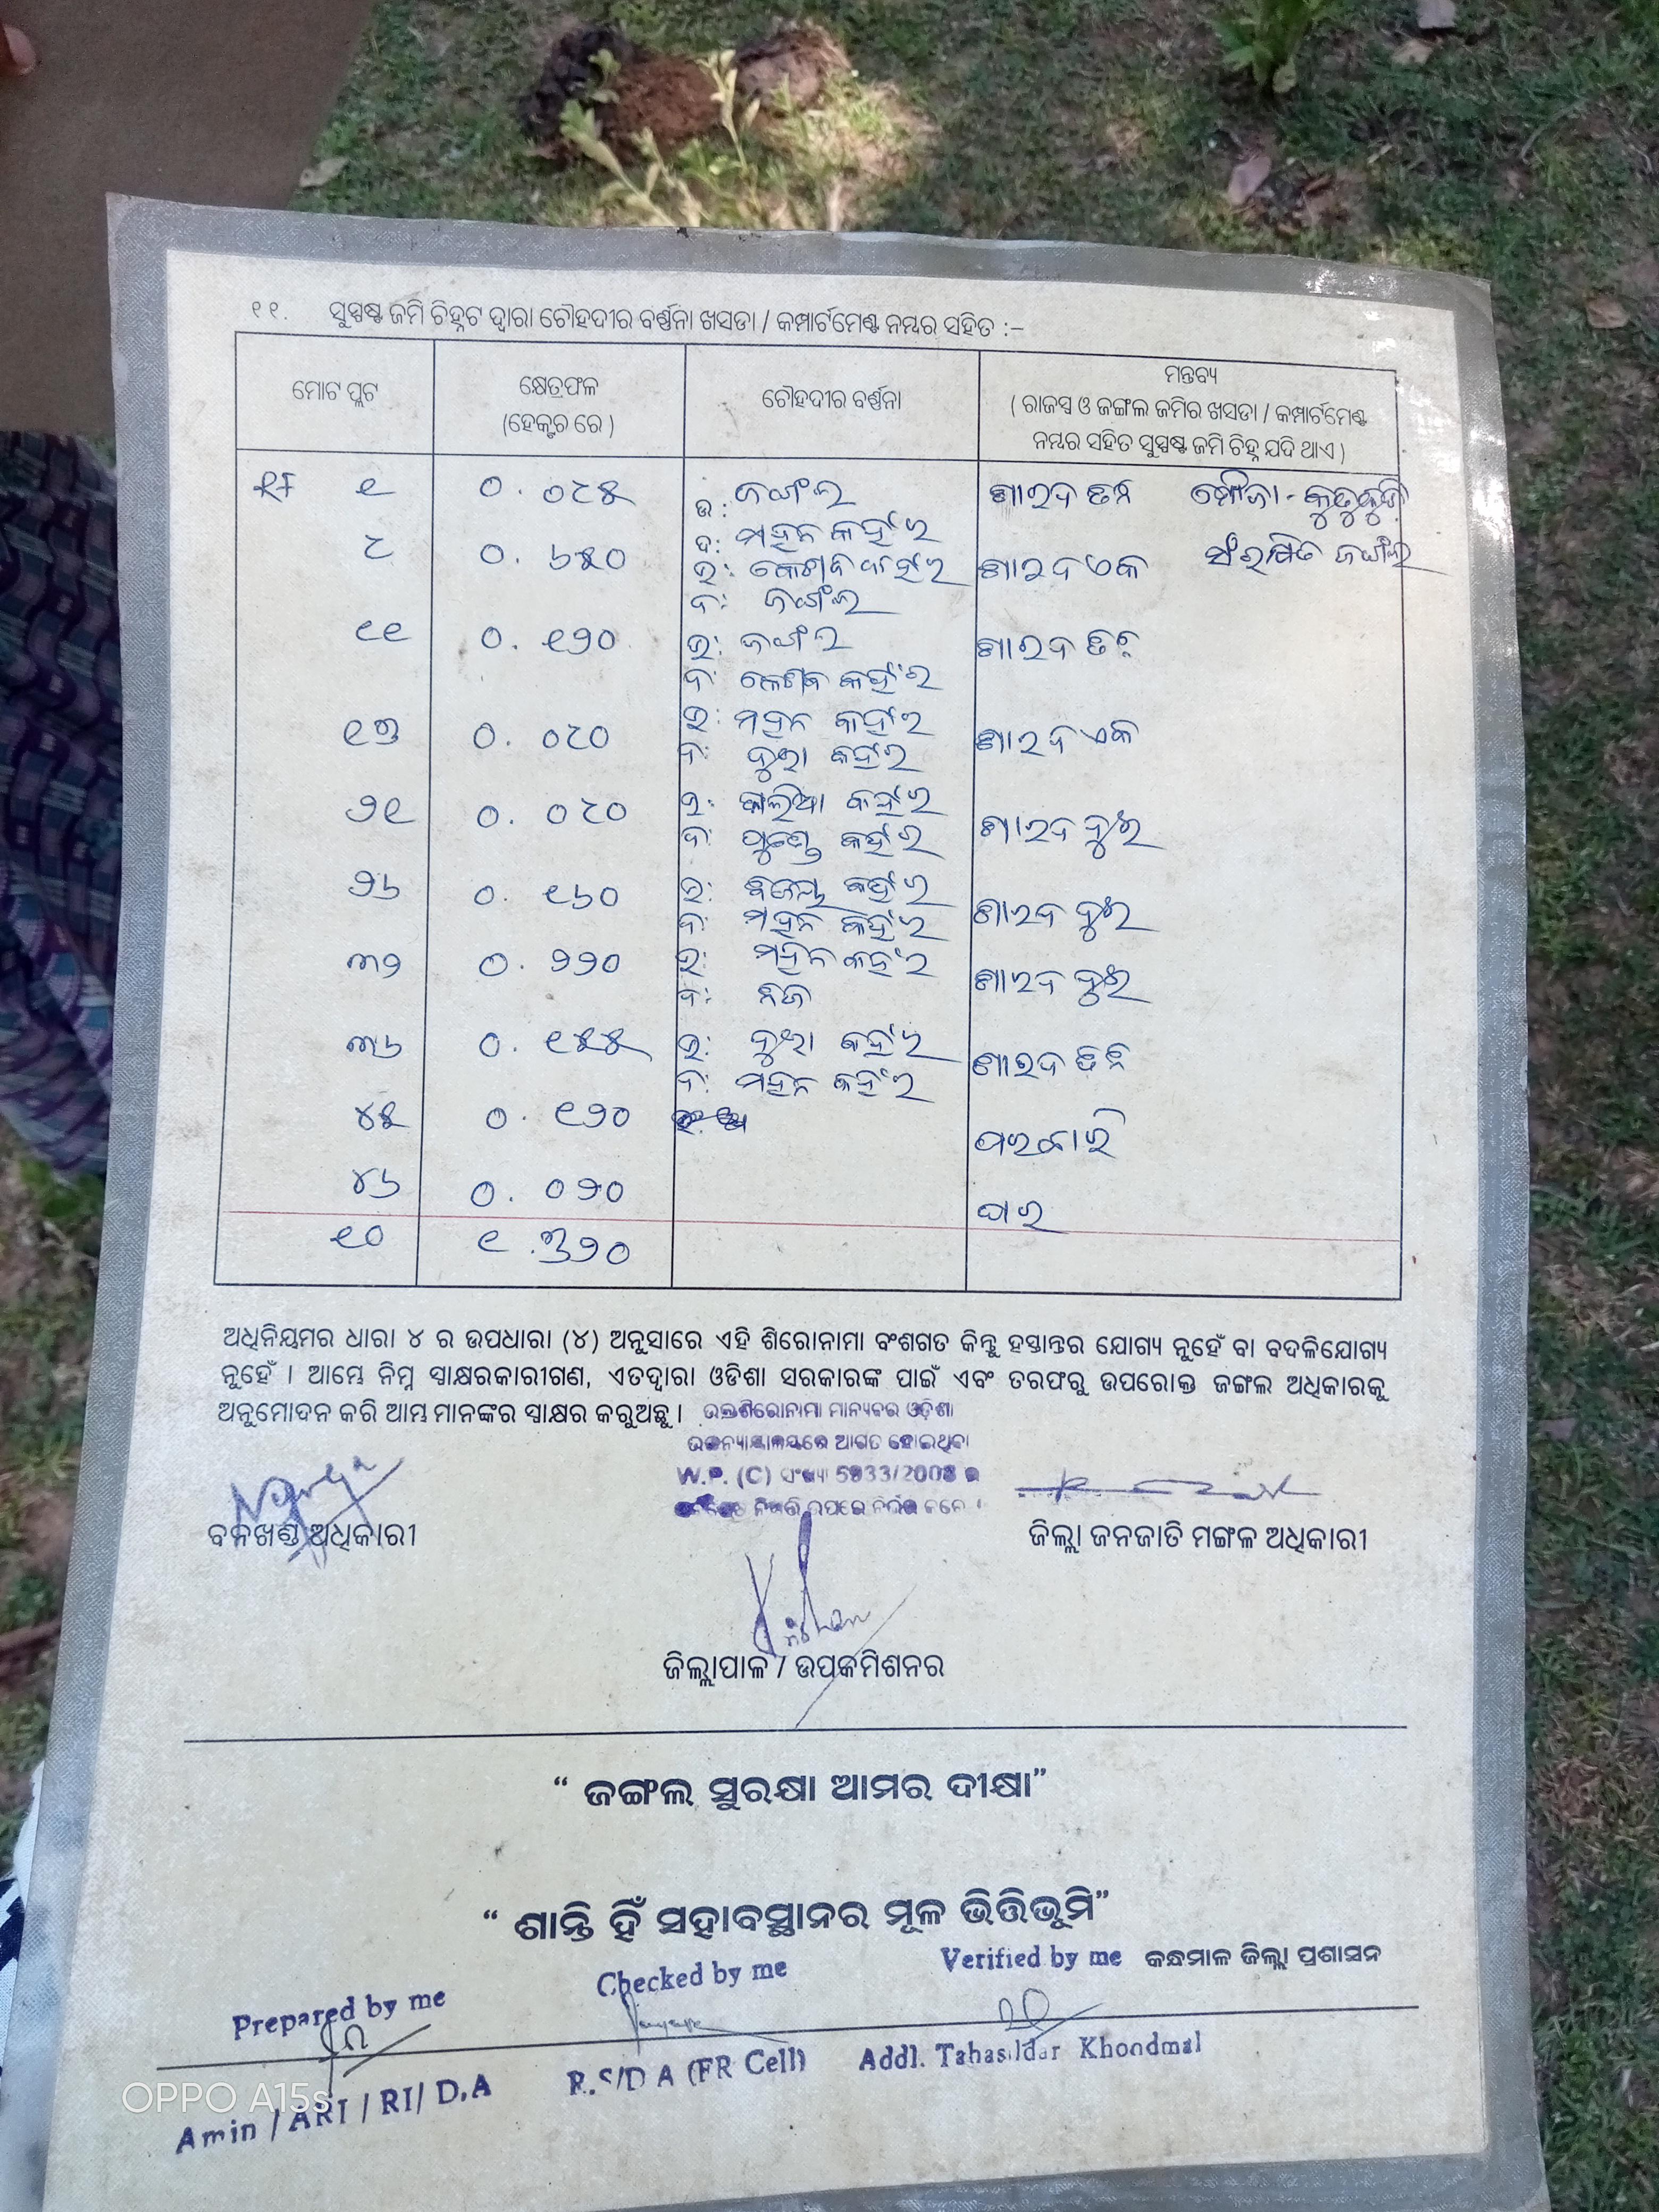 ୧୧. ସୁସ୍ପଷ୍ଟ ଜମି ଚିହ୍ନଟ ଦ୍ୱାରା ଚୌହଦୀର ବର୍ଣ୍ଣନା ଖସଡା / କମ୍ପାର୍ଟମେଣ୍ଟ ନମ୍ବର ସହିତ :–
ମୋଟ ପ୍ଲଟ
କ୍ଷେତ୍ରଫଳ
(ହେକ୍ଟର ରେ)
ଚୌହଦୀର ବର୍ଣ୍ଣନା
ମନ୍ତବ୍ୟ
( ରାଜସ୍ୱ ଓ ଜଙ୍ଗଲ ଜମିର ଖସଡା / କମ୍ପାର୍ଟମେଣ୍ଟ
ନମ୍ବର ସହିତ ସୁସ୍ପଷ୍ଟ ଜମି ଚିହ୍ନ ଯଦି ଥାଏ )
RF ୧ ୦.୦୮୫ ଉ: ଜଙ୍ଗଲ ଶାରଦ ତିନି ମୌଜା -
ଦ: ମହନ କହଁର
୮ ୦.୬୫୦ ଉ: କେଶବ କହଁର ଶାରଦ ଏକ ସଂରକ୍ଷିତ ଜଙ୍ଗଲ
ଦ: ଜଙ୍ଗଲ
୧୧ ୦.୧୨୦ ଉ: ଜଙ୍ଗଲ ଶାରଦ ତିନି
ଦ: କେଶବ କହଁର
୧୩ ୦.୦୮୦ ଉ: ମହନ କହଁର ଶାରଦ ଏକ
ଦ: କହଁର
୨୧ ୦.୦୮୦ ଉ: କାଳିଆ କହଁର ଶାରଦ ଦୁଇ
ଦ: କହଁର
୨୬ ୦.୧୬୦ ଉ: କହଁର ଶାରଦ ଦୁଇ
ଦ: ମହନ କହଁର
୩୨ ୦.୨୨୦ ଉ: ମହନ କହଁର ଶାରଦ ଦୁଇ
ଦ: ନିଜ
୩୬ ୦.୧୫୫ ଉ: କହଁର ଶାରଦ ତିନି
ଦ: ମହନ କହଁର
୪୫ ୦.୧୨୦ ଘରବାରି
୪୬ ୦.୦୨୦ ଘର
୧୦ ୧.୬୨୦
ଅଧିନିୟମର ଧାରା ୪ ର ଉପଧାରା (୪) ଅନୁସାରେ ଏହି ଶିରୋନାମା ବଂଶଗତ କିନ୍ତୁ ହସ୍ତାନ୍ତର ଯୋଗ୍ୟ ନୁହେଁ ବା ବଦଳିଯୋଗ୍ୟ
ନୁହେଁ । ଆମ୍ଭେ ନିମ୍ନ ସ୍ୱାକ୍ଷରକାରୀଗଣ, ଏତଦ୍ଵାରା ଓଡିଶା ସରକାରଙ୍କ ପାଇଁ ଏବଂ ତରଫରୁ ଉପରୋକ୍ତ ଜଙ୍ଗଲ ଅଧିକାରକୁ
ଅନୁମୋଦନ କରି ଆମ୍ଭ ମାନଙ୍କର ସ୍ୱାକ୍ଷର କରୁଅଛୁ ।
ଉକ୍ତ ଶିରୋନାମା ମାନ୍ୟବର ଓଡ଼ିଶା
ଉଚ୍ଚନ୍ୟାୟାଳୟରେ ଆଗତ ହୋଇଥିବା
W.P. (C) ସଂଖ୍ୟା 5933/2008 ର
ଉପରେ ନିର୍ଭର କରେ ।
ବନଖଣ୍ଡ ଅଧିକାରୀ
ଜିଲ୍ଲା ଜନଜାତି ମଙ୍ଗଳ ଅଧିକାରୀ
ଜିଲ୍ଲାପାଳ / ଉପକମିଶନର
“ ଜଙ୍ଗଲ ସୁରକ୍ଷା ଆମର ଦୀକ୍ଷା”
“ ଶାନ୍ତି ହିଁ ସହାବସ୍ଥାନର ମୂଳ ଭିତ୍ତିଭୂମି”
Prepared by me
Checked by me
Verified by me କନ୍ଧମାଳ ଜିଲ୍ଲା ପ୍ରଶାସନ
Amin / ARI / RI/ D.A
R.S/D A (FR Cell)
Addl. Tahasildar Khondmal
OPPO A15s